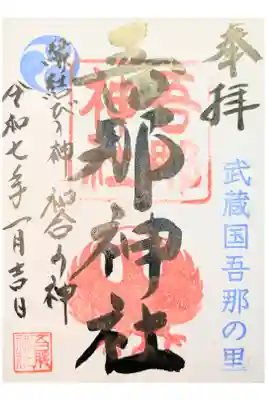 奉拝
武蔵国吾那の里
吾那神社
縁結びの神 和合の神
令和七年一月吉日